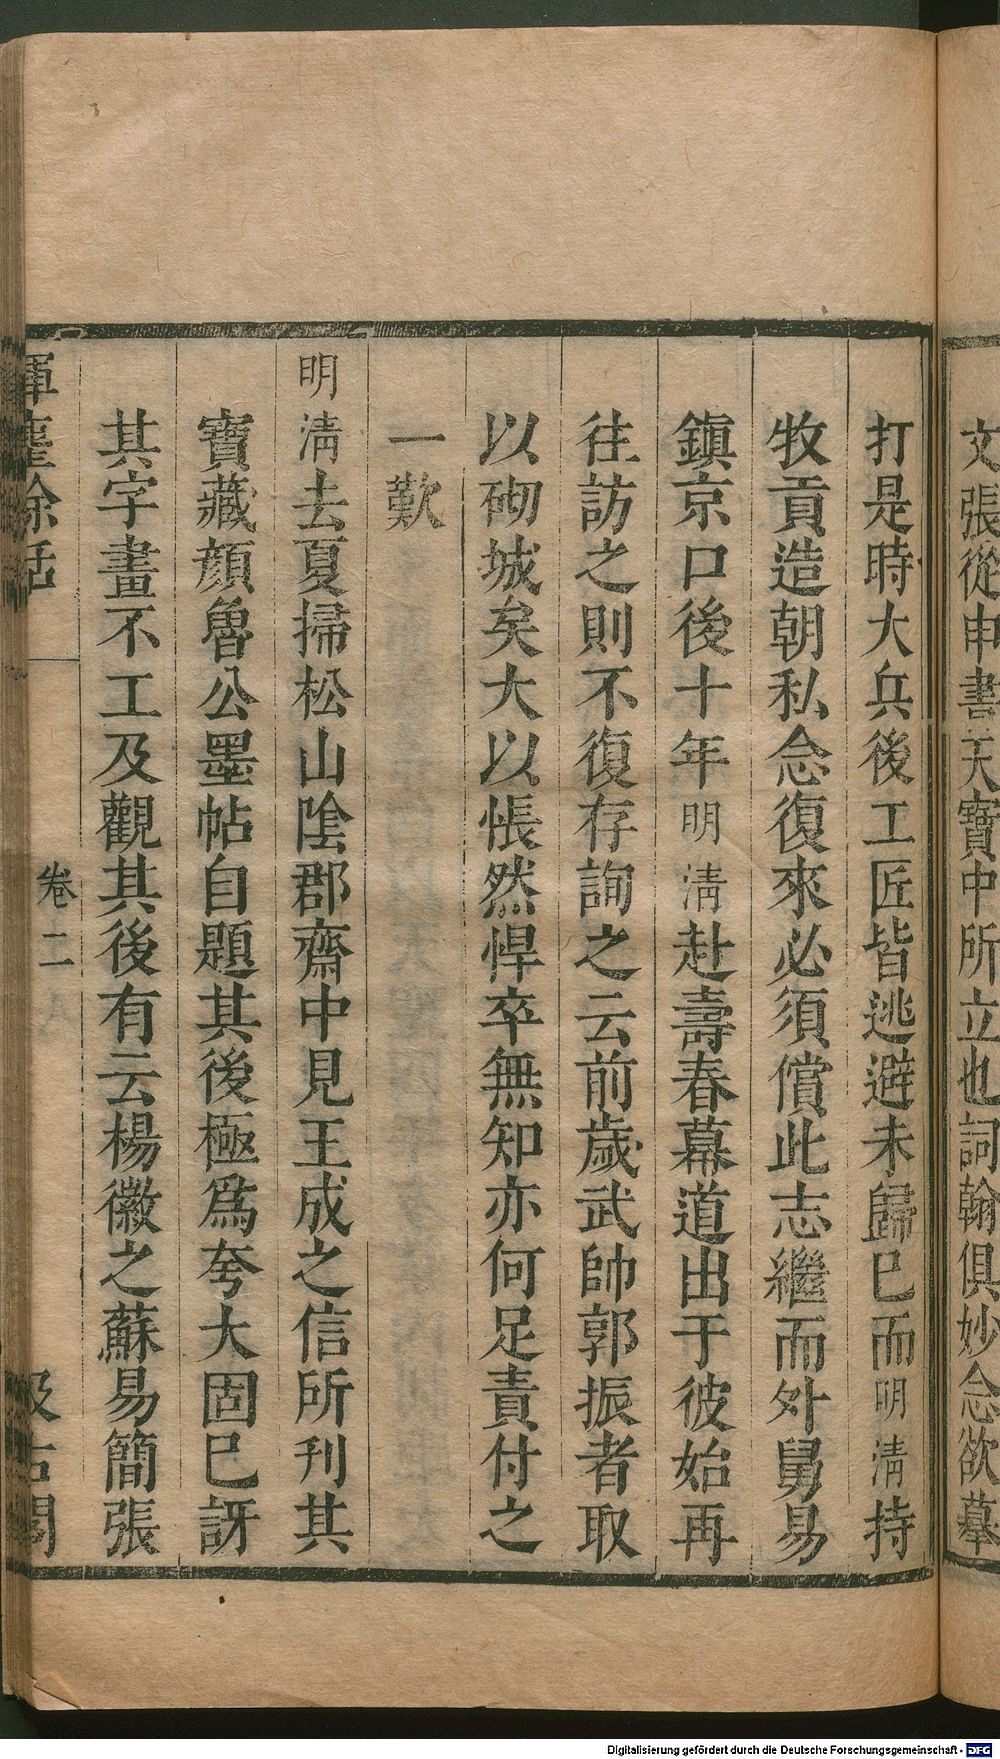 文張從申書天寶中所立也詞翰俱妙念欲摹
打是時大兵後工匠皆逃避未歸已而明清持
牧貢造朝私念復來必須償此志繼而外舅易
鎮京口後十年明清赴壽春幕道出于彼始再
往訪之則不復存詢之云前歲武帥郭振者取
以砌城矣大以悵然悍卒無知亦何足責付之
一歎
明清去夏掃松山陰郡齋中見王成之信所刊其
寶藏顏魯公墨帖自題其後極爲夸大固已訝
其字畫不工及觀其後有云楊徽之蘇易簡張
揮麈餘話
卷二
八
汲古閣
Digitalisierung gefördert durch die Deutsche Forschungsgemeinschaft - DFG